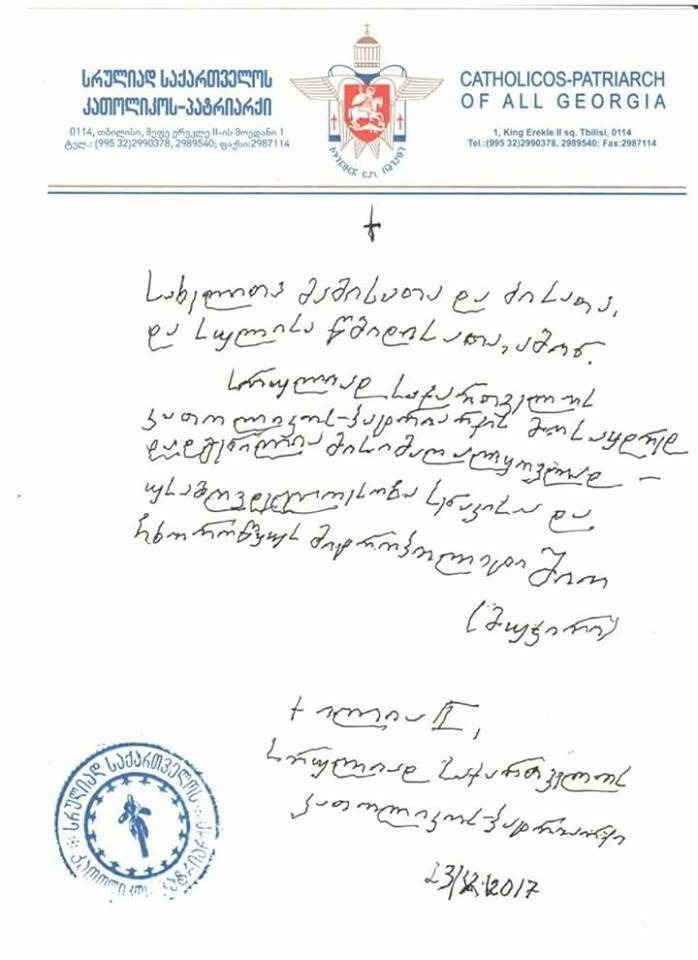 სრულიად საქართველოს
კათოლიკოს-პატრიარქი
0114, თბილისი, მეფე ერეკლე II-ის მოედანი 1
ტელ.: (995 32)2990378, 2989540; ფაქსი:2987114
CATHOLICOS-PATRIARCH
OF ALL GEORGIA
1, King Erekle II sq. Tbilisi, 0114
Tel.:(995 32)2990378, 2989540; Fax:2987114
სახელითა მამისათა და ძისათა,
და სულისა წმიდისათა, ამინ.
სრულიად საქართველოს
კათოლიკოს-პატრიარქის მოსაყდრედ
დადგენილია მისი მაღალყოვლად -
უსამღვდელოესობა სენაკისა და
ჩხოროწყუს მიტროპოლიტი შიო
(მუჯირი)
+ ილია II,
სრულიად საქართველოს
კათოლიკოს-პატრიარქი
23/XI.2017
სრულიად საქართველოს
კათოლიკოს პატრიარქი